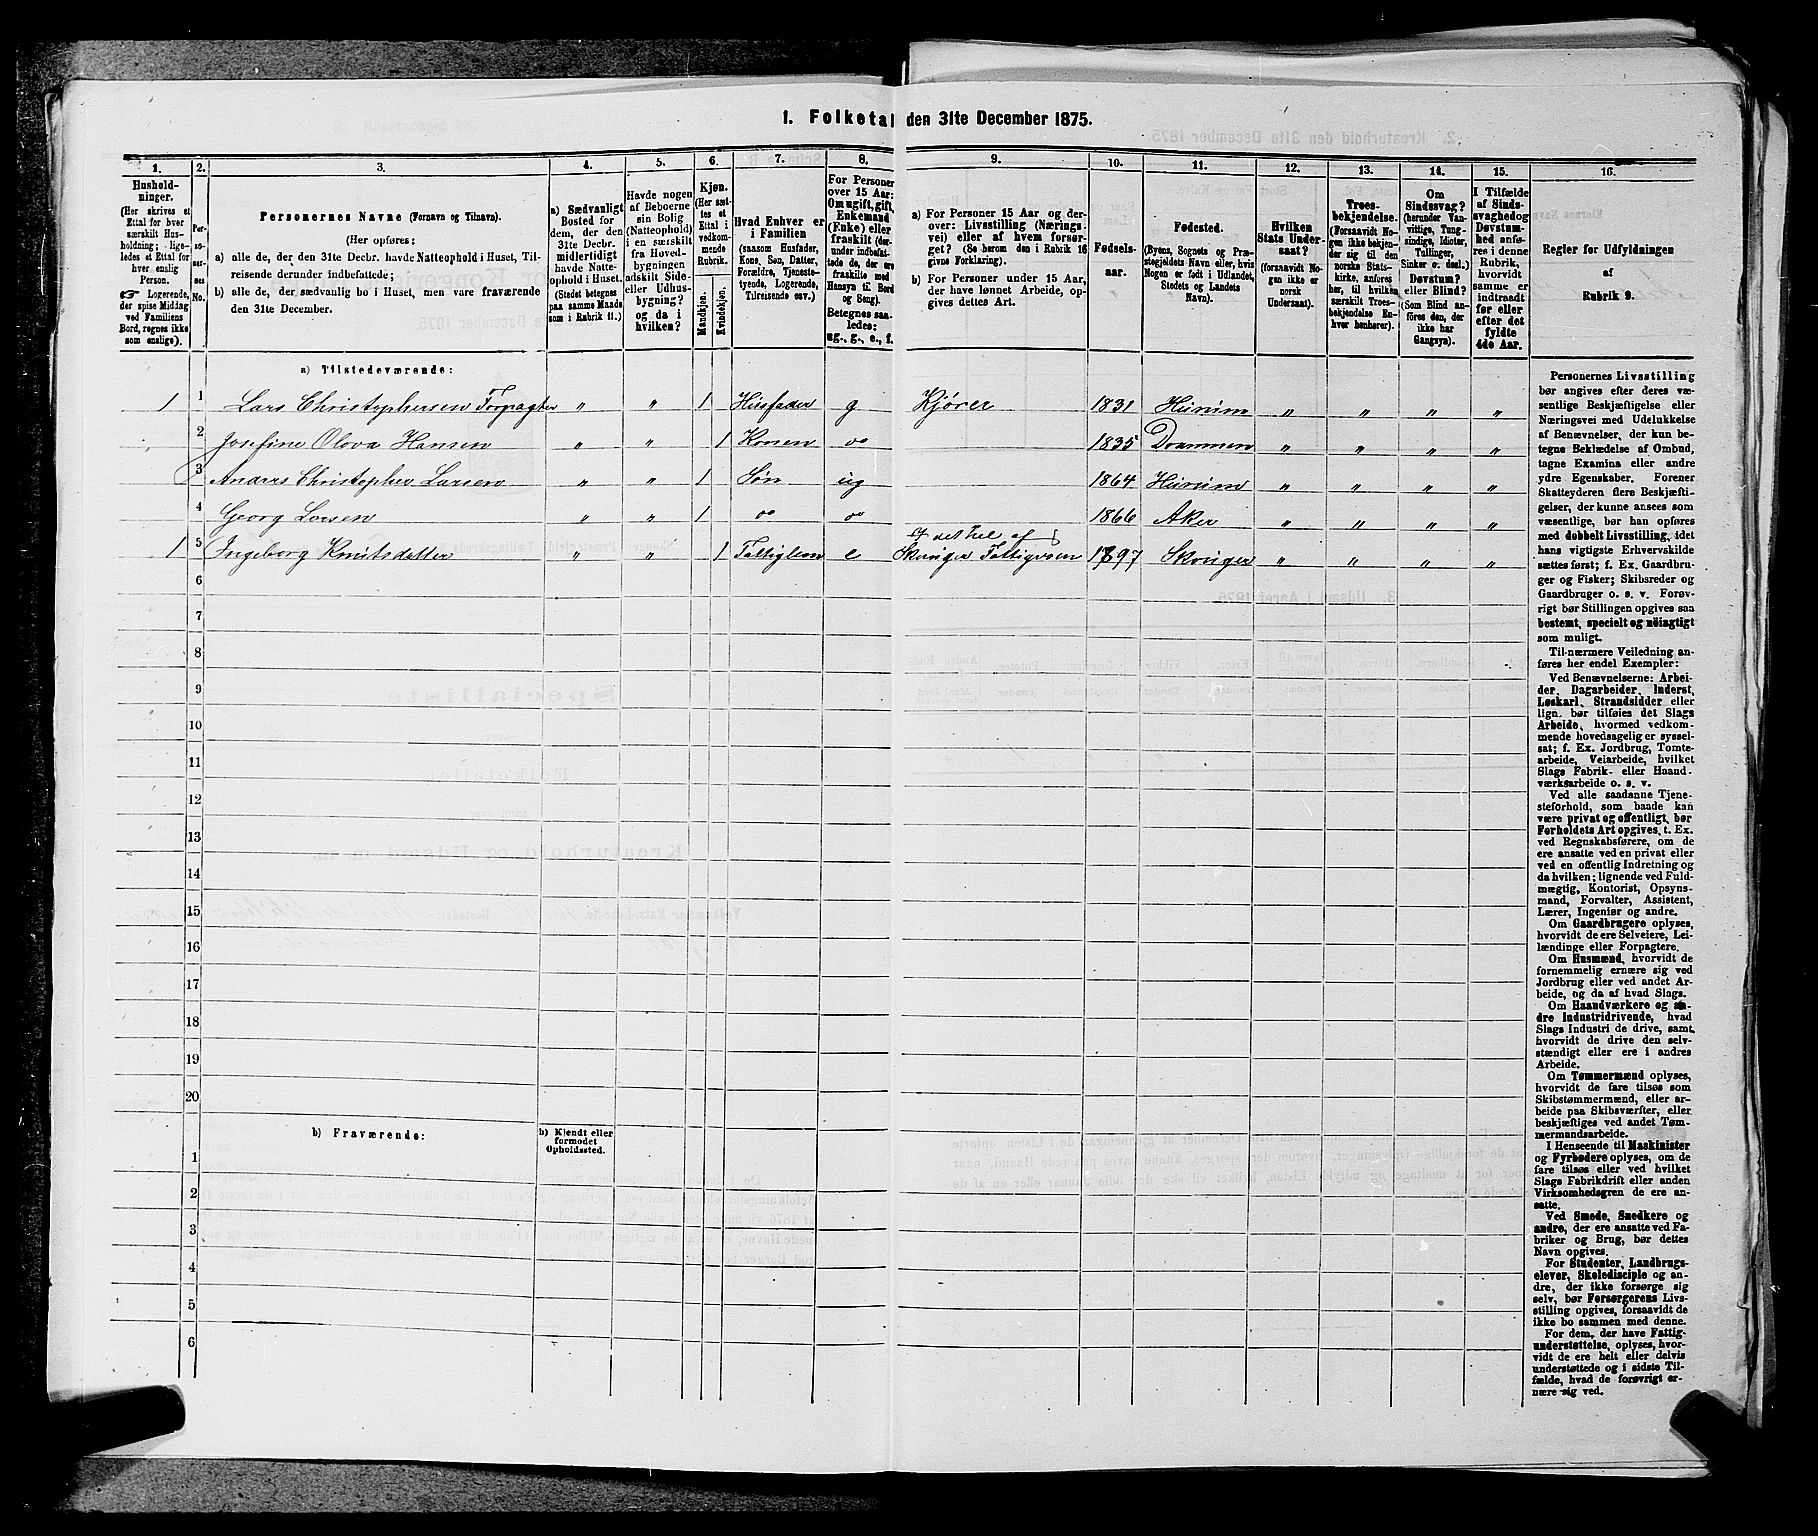 1. Folketal den 31te December 1875.
1.
2.
3.
4.
5.
6.
7.
8.
9.
10.
11.
12.
13.
14.
15.
16.
Hushold-
ninger.
(Her skrives et
Ettal for hver
særskilt Hus-
holdning; lige-
ledes et Ettal for
hver enslig
Person.
☞ Logerende,
der spise Middag
ved Familiens
Bord, regnes ikke
som enslige).
Per-
so-
ner-
nes
No.
Personernes Navne (Fornavn og Tilnavn).
(Her opføres:
a) alle de, der den 31te Decbr. havde Natteophold i Huset, Til-
reisende derunder indbefattede;
b) alle de, der sædvanlig bo i Huset, men vare fraværende
den 31te December.
a) Sædvanligt
Bosted for
dem, der den
31te Decbr.
midlertidigt
havde Natte-
ophold i Huset.
(Stedet betegnes
paa samme Maade
som i Rubrik 11.)
Havde nogen
af Beboerne
sin Bolig
(Natteophold)
i en særskilt
fra Hoved-
bygningen
adskilt Side-
eller Udhus-
bygning?
og da i
hvilken?
Kjøn.
(Her sæt-
tes et
Ettal i
vedkom-
mende
Rubrik.
Mandkjøn.
Kvindekjøn.
Hvad Enhver er
i Familien
(saasom Husfader,
Kone, Søn, Datter,
Forældre, Tjeneste-
tyende, Logerende,
Tilreisende osv.)
For Personer
over 15 Aar:
Om ugift, gift,
Enkemand
(Enke) eller
fraskilt (der-
under indbefat-
tede de, der ere
fraskilte med
Hensyn til Bord
og Seng).
Betegnes saa-
ledes:
ug., g., e., f.
a) For Personer 15 Aar og der-
over: Livsstilling (Nærings-
vei) eller af hvem forsør-
get? (Se herom den i Rubrik 16
givne Forklaring).
b) For Personer under 15 Aar,
der have lønnet Arbeide, op-
gives dettes Art.
Fødsels-
aar.
Fødested.
(Byens, Sognets og Præ-
stegjeldets Navn eller, hvis
Nogen er født i Udlandet,
Stedets og Landets
Navn).
Hvilken
Stats Under-
saat?
(forsaavidt No-
gen ikke er
norsk
Undersaat).
Troes-
bekjendelse.
(Forsaavidt No-
gen ikke bekjen-
der sig til den
norske Stats-
kirke, anføres
her, til hvilken
særskilt Troes-
bekjendelse En-
hver henhører).
Om
Sindssvag?
(herunder Van-
vittige, Tung-
sindige, Idioter,
Tullinger,
Sinker o. desl.)
Døvstum?
eller Blind?
(Som Blind an-
føres den, der
ikke har
Gangsyn).
I Tilfælde
af Sinds-
svaghed og
Døvstum-
hed anfø-
res i denne
Rubrik,
hvorvidt
samme er
indtraadt
før eller
efter det
fyldte
4de Aar.
Regler for Udfyldningen
af
Rubrik 9.
a) Tilstedeværende:
1 1 Lars Christophersen Forpagter " " 1 Husfader g Kjører 1831 Hurum " " " "
2 Josefine Olova Hansen " " 1 Konen do 1835 Drammen " " " "
3 Anders Christopher Larsen " " 1 Søn ug 1864 Hurum " " " "
4 Georg Larsen " " 1 do do 1866 Aker " " " "
1 5 Ingeborg Knutsdatter " " 1 Fattiglem e 1797 " " " "
6
7
8
9
10
11
12
13
14
15
16
17
18
19
20
b) Fraværende:
b) Kjendt eller
formodet
Opholdssted.
1
2
3
4
5
6
Personernes Livsstilling
bør angives efter deres væ-
sentlige Beskjæftigelse eller
Næringsvei med Udelukkelse
af Benævnelser, der kun be-
tegne Beklædelse af Ombud,
tagne Examina eller andre
ydre Egenskaber. Forener
Skatteyderen flere Beskjæfti-
gelser, der kunne ansees som
væsentlige, bør han opføres
med dobbelt Livsstilling, idet
hans vigtigste Erhvervskilde
sættes først; f. Ex. Gaardbru-
ger og Fisker; Skibsreder og
Gaardbruger o. s. v. Forøv-
rigt bør Stillingen opgives saa
bestemt, specielt og nøiagtigt
som muligt.
Til nærmere Veiledning an-
føres her endel Exempler:
Ved Benævnelserne: Arbei-
der, Dagarbeider, Inderst,
Løskarl, Strandsidder eller
lign. bør tilføies det Slags
Arbeide, hvormed vedkom-
mende hovedsagelig er syssel-
sat; f. Ex. Jordbrug, Tomte-
arbeide, Veiarbeide, hvilket
Slags Fabrik- eller Haand-
værksarbeide o. s. v.
Ved alle saadanne Tjene-
steforhold, som baade kan
være privat og offentligt, bør
Forholdets Art opgives, t. Ex.
ved Regnskabsførere, om de
ere ansatte ved en privat eller
ved en offentlig Indretning og
da hvilken; lignende ved Fuld-
mægtig, Kontorist, Opsyns-
mand, Forvalter, Assistent,
Lærer, Ingeniør og andre.
Om Gaardbrugere oplyses,
hvorvidt de ere Selveiere, Lei-
lændinge eller Forpagtere.
Om Husmænd, hvorvidt de
fornemmelig ernære sig ved
Jordbrug eller ved andet Ar-
beide, og da af hvad Slags.
Om Haandværkere og an-
dre Industridrivende, hvad
Slags Industri de drive, samt
hvorvidt de drive den selv-
stændigt eller ere i andres
Arbeide.
Om Tømmermænd oplyses,
hvorvidt de fare tilsøs som
Skibstømmermænd, eller ar-
beide paa Skibsværfter, eller
beskjæftiges ved andet Tøm-
mermandsarbeide.
I Henseende til Maskinister
og Fyrbødere oplyses, om de
fare tilsøs eller ved hvilket
Slags Fabrikdrift eller anden
Virksomhedsgren de ere an-
satte.
Ved Smede, Snedkere og
andre, der ere ansatte ved Fa-
briker og Brug, bør dettes
Navn opgives.
For Studenter, Landbrugs-
elever, Skoledisciple og an-
dre, der ikke forsørge sig
selv, bør Forsørgerens Livs-
stilling opgives, forsaavidt de
ikke bo sammen med denne.
For dem, der have Fattig-
understøttelse, oplyses, hvor-
vidt de ere helt eller delvis
understøttede og i sidste Til-
fælde, hvad de forøvrigt er-
nære sig ved.